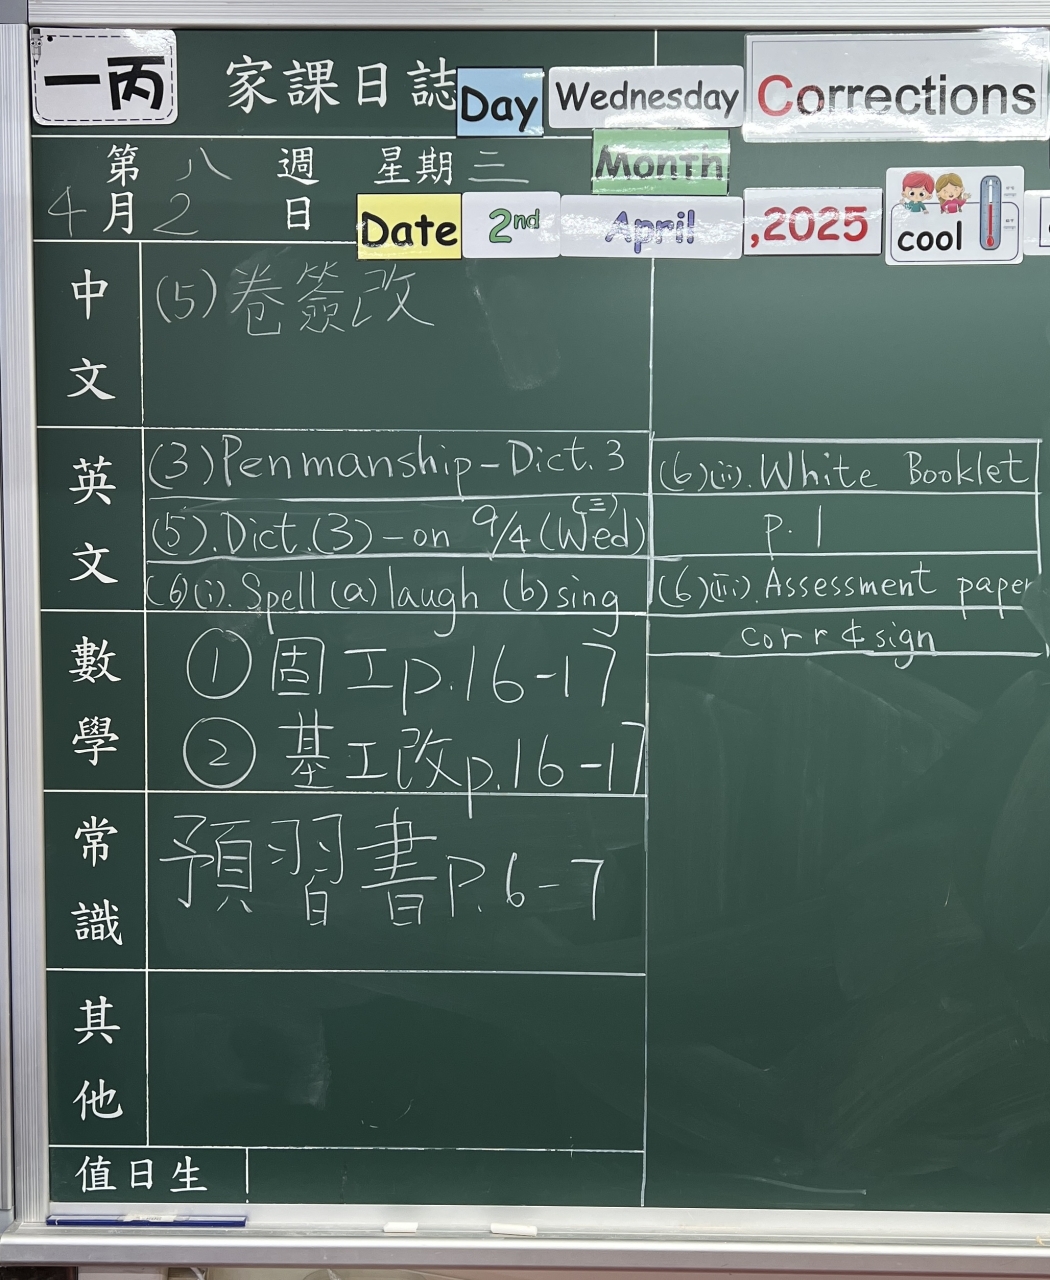 一丙
家課日誌
Day Wednesday
Corrections
第 八 週 星期 三
Month
4 月 2 日
Date 2nd April ,2025
cool
中文
(5) 卷簽改
英文
(3) Penmanship - Dict. 3
(5). Dict. (3) - on 9/4 (Wed)
(三)
(6)(i). Spell (a) laugh (b) sing
(6)(ii). White Booklet
p. 1
(6)(iii). Assessment paper
corr & sign
數學
① 固工p.16-17
② 基工改p.16-17
常識
預習書P.6-7
其他
值日生